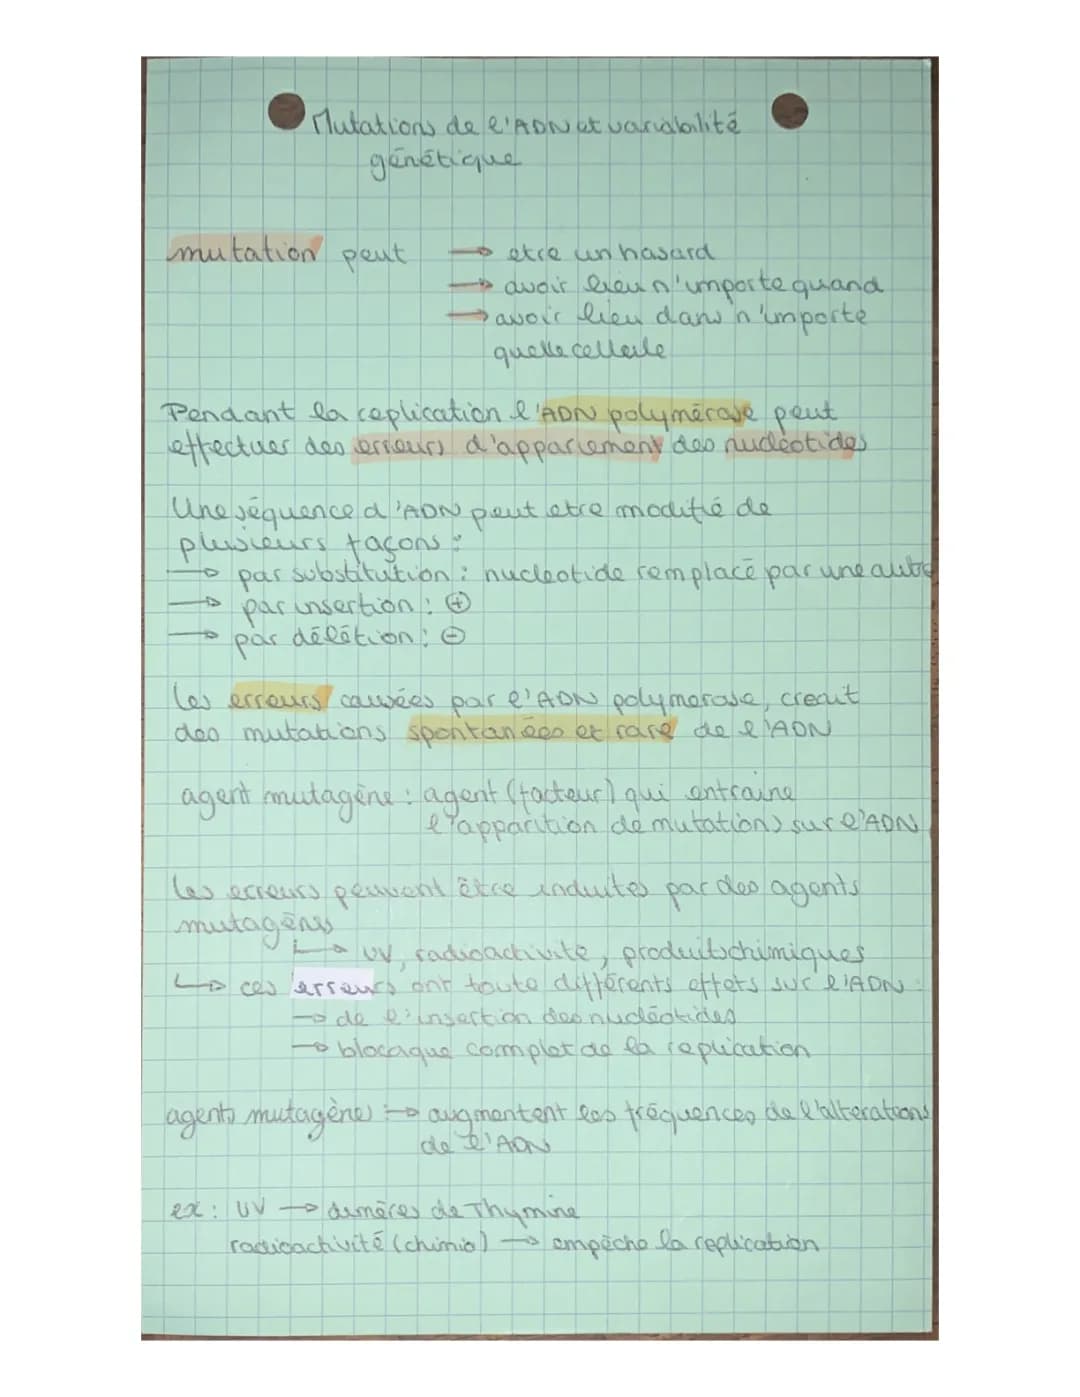 Mutations de l'ADN et variabilité
génétique
mutation peut → etre un hasard
→ avoir lieu n'importe quand
→ avoir lieu dans n'importe
quelle cellule
Pendant la réplication l'ADN polymérase peut
effectuer des erreurs d'appariement des nucléotides
Une séquence d'ADN peut etre modifié de
plusieurs façons :
→ par substitution : nucleotide remplacé par une autre
→ par insertion : ⊕
→ par délétion : ⊖
Les erreurs causées par l'ADN polymerase, creait
des mutations spontanées et rare de l'ADN
agent mutagène : agent (facteur) qui entraine
l'apparition de mutations sur l'ADN
Les erreurs peuvent être induites par des agents
mutagènes
↳ UV, radioactivité, produits chimiques
↳ ces erreurs ont toute différents effets sur l'ADN :
→ de l'insertion des nucléotides
→ blocaque complet de la replication
agents mutagène : → augmentent les fréquences de l'alterations
de l'ADN
ex : UV → dimères de Thymine
radioactivité (chimio) → empêche la replication